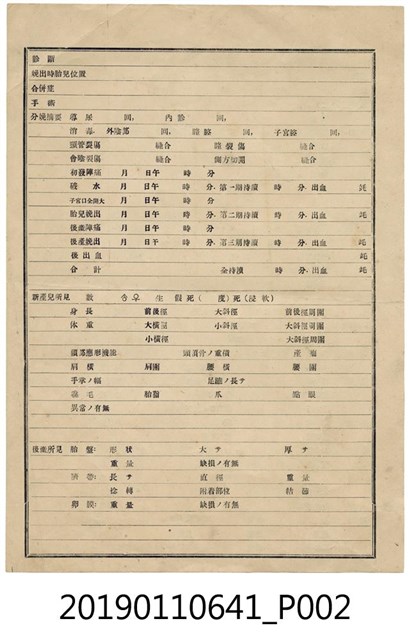 診斷
娩出時胎兒位置
合併症
手術
分娩摘要 導尿 回, 內診 回,
消毒 外陰部 回, 膣 回, 子宮 回,
頸管裂傷 縫合 膣裂傷 縫合
會陰裂傷 縫合 側方切開 縫合
初發陣痛 月 日午 時 分
破水 月 日午 時 分, 第一期持續 時 分, 出血 瓦
子宮口全開大 月 日午 時 分
胎兒娩出 月 日午 時 分, 第二期持續 時 分, 出血 瓦
後產陣痛 月 日午 時 分
後產娩出 月 日午 時 分, 第三期持續 時 分, 出血 瓦
後出血 瓦
合計 全持續 時 分, 出血 瓦
新產兒所見 數 ♂♀ 生 假死( 度)死(浸軟)
身長 前後徑 大斜徑 前後徑周圍
体重 大橫徑 小斜徑 大斜徑周圍
小橫徑 小斜徑周圍
頭蓋應形機能 頭頂骨ノ重積 產瘤
肩橫 肩圍 腰橫 腰圍
手掌ノ幅 足蹠ノ長サ
毳毛 胎脂 爪
異常ノ有無
後產所見 胎盤: 形狀 大サ 厚サ
重量 缺損ノ有無
臍帶: 長サ 直徑 重量
捻轉 附着部位 結節
卵膜: 重量 缺損ノ有無
20190110641_P002